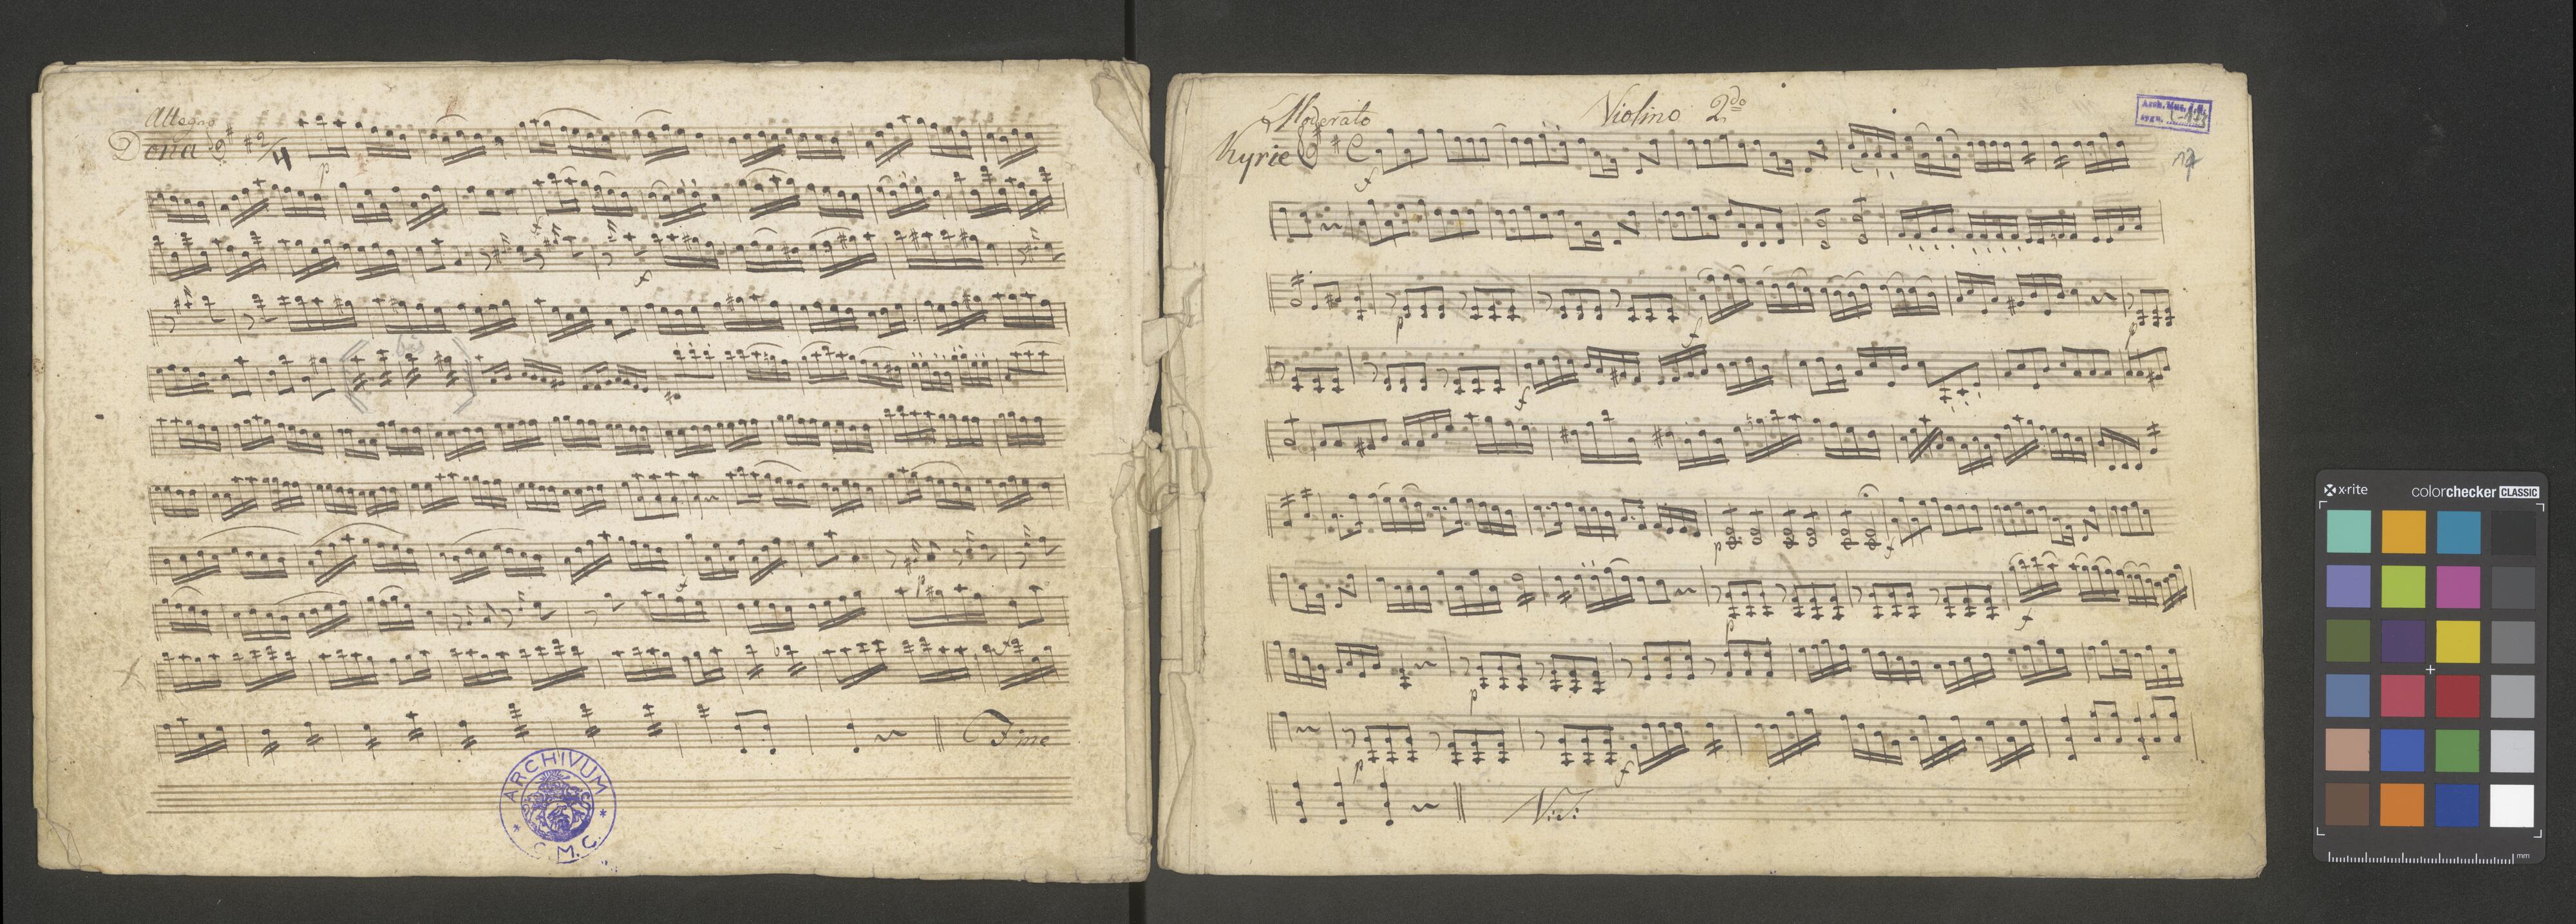 Allegro
Dona 2/4
p
f
f
bis
f
p
Fine
ARCHIVUM
C. M. C.
Moderato
Violino 2do
Kyrie C
f
p
f
p
f
p
f
p
f
p
p
f
V: S:
x-rite
colorchecker CLASSIC
mm